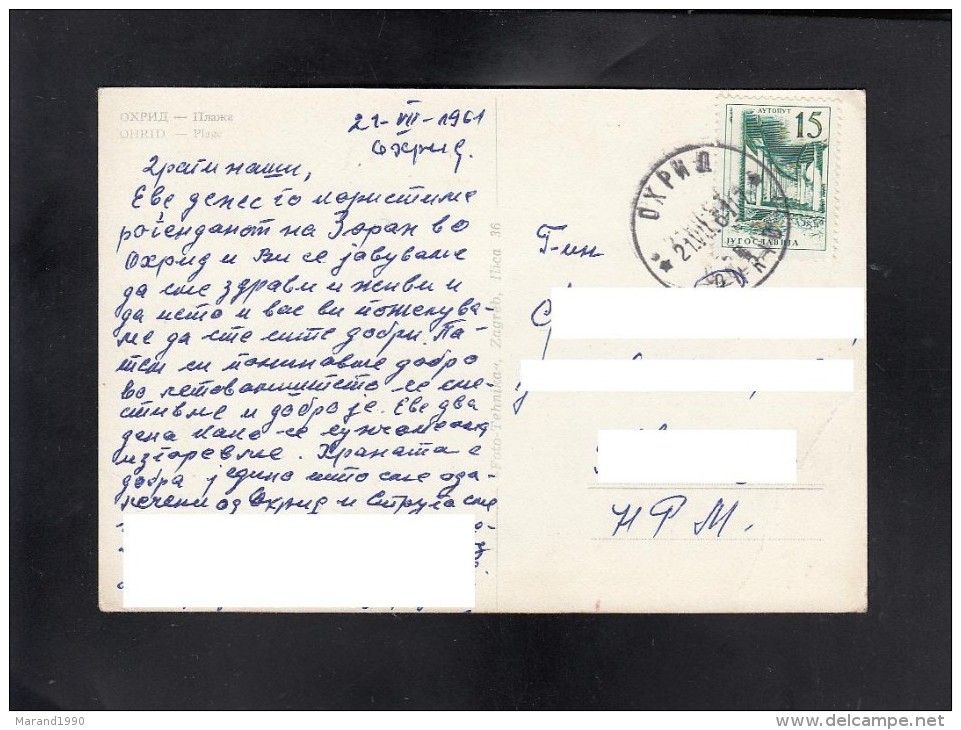 ОХРИД — Плажа
OHRID — Plage
21-VII-1961
Охрид.
Драги наши,
Еве денес го користиме
роѓенданот на Зоран во
Охрид и Ви се јавуваме
да сме здрави и живи и
да исто и вас ви пожелува-
ме да сте сите добри. Па-
тем си поминавме добро
во летовалиштето се сме-
стивме и добро је. Еве два
дена како се сунчаме
изгоревме. Храната е
добра једино што сме ода-
лечени од Охрид и Струга сме
Foto-Tehnika, Zagreb, Ilica 36
АУТОПУТ
15
ЈУГОСЛАВИЈА
ОХРИД
21.VII.61
OHRID
Г-ин
НРМ.
Marand1990
delcampe.net